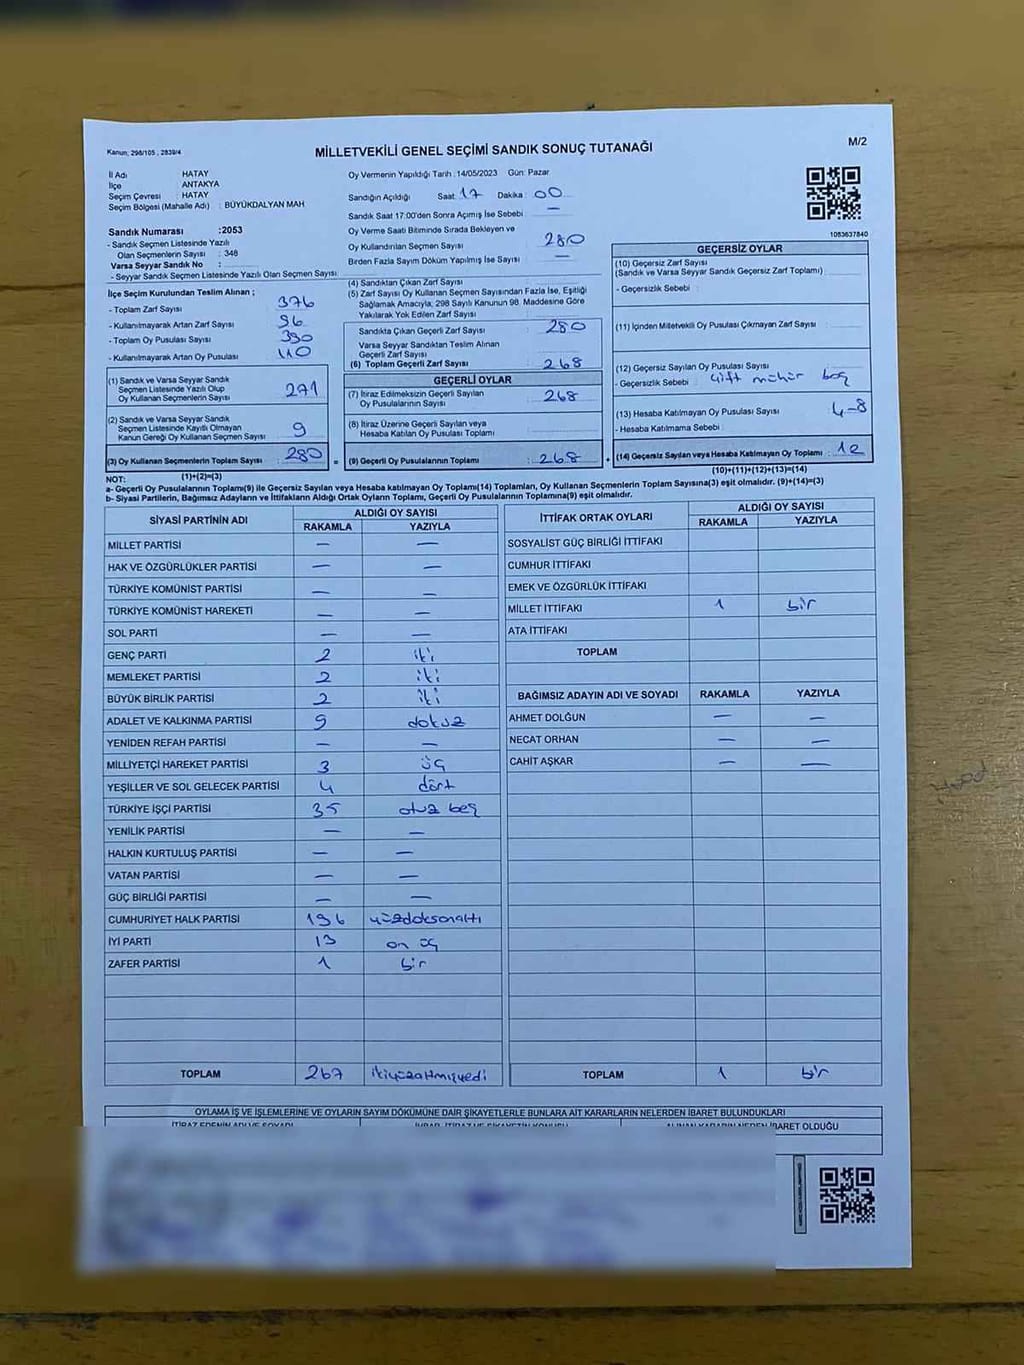 Kanun; 298/105 , 2839/4
MİLLETVEKİLİ GENEL SEÇİMİ SANDIK SONUÇ TUTANAĞI
M/2
İl Adı : HATAY
İlçe : ANTAKYA
Seçim Çevresi : HATAY
Seçim Bölgesi (Mahalle Adı) : BÜYÜKDALYAN MAH
Sandık Numarası :2053
- Sandık Seçmen Listesinde Yazılı
Olan Seçmenlerin Sayısı : 346
Varsa Seyyar Sandık No :
- Seyyar Sandık Seçmen Listesinde Yazılı Olan Seçmen Sayısı
İlçe Seçim Kurulundan Teslim Alınan ;
- Toplam Zarf Sayısı 376
- Kullanılmayarak Artan Zarf Sayısı 96
- Toplam Oy Pusulası Sayısı 390
- Kullanılmayarak Artan Oy Pusulası 110
(1) Sandık ve Varsa Seyyar Sandık
Seçmen Listesinde Yazılı Olup
Oy Kullanan Seçmenlerin Sayısı 271
(2) Sandık ve Varsa Seyyar Sandık
Seçmen Listesinde Kayıtlı Olmayan
Kanun Gereği Oy Kullanan Seçmen Sayısı 9
(3) Oy Kullanan Seçmenlerin Toplam Sayısı : 280
(1)+(2)=(3)
Oy Vermenin Yapıldığı Tarih : 14/05/2023 Gün: Pazar
Sandığın Açıldığı Saat: 17 Dakika: 00
Sandık Saat 17:00'den Sonra Açımış İse Sebebi —
Oy Verme Saati Bitiminde Sırada Bekleyen ve
Oy Kullandırılan Seçmen Sayısı 280
Birden Fazla Sayım Döküm Yapılmış İse Sayısı —
(4) Sandıktan Çıkan Zarf Sayısı
(5) Zarf Sayısı Oy Kullanan Seçmen Sayısından Fazla İse, Eşitliği
Sağlamak Amacıyla; 298 Sayılı Kanunun 98. Maddesine Göre
Yakılarak Yok Edilen Zarf Sayısı
Sandıkta Çıkan Geçerli Zarf Sayısı 280
Varsa Seyyar Sandıktan Teslim Alınan
Geçerli Zarf Sayısı
(6) Toplam Geçerli Zarf Sayısı : 268
GEÇERLİ OYLAR
(7) İtiraz Edilmeksizin Geçerli Sayılan
Oy Pusulalarının Sayısı 268
(8) İtiraz Üzerine Geçerli Sayılan veya
Hesaba Katılan Oy Pusulası Toplamı
= (9) Geçerli Oy Pusulalarının Toplamı : 268
1083637840
GEÇERSİZ OYLAR
(10) Geçersiz Zarf Sayısı
(Sandık ve Varsa Seyyar Sandık Geçersiz Zarf Toplamı)
- Geçersizlik Sebebi :
(11) İçinden Milletvekili Oy Pusulası Çıkmayan Zarf Sayısı
(12) Geçersiz Sayılan Oy Pusulası Sayısı
- Geçersizlik Sebebi : Çift mühür boş
(13) Hesaba Katılmayan Oy Pusulası Sayısı 4-8
- Hesaba Katılmama Sebebi
+ (14) Geçersiz Sayılan veya Hesaba Katılmayan Oy Toplamı : 12
(10)+(11)+(12)+(13)=(14)
NOT:
a- Geçerli Oy Pusulalarının Toplamı(9) ile Geçersiz Sayılan veya Hesaba Katılmayan Oy Toplamı(14) Toplamları, Oy Kullanan Seçmenlerin Toplam Sayısına(3) eşit olmalıdır. (9)+(14)=(3)
b- Siyasi Partilerin, Bağımsız Adayların ve İttifakların Aldığı Ortak Oyların Toplamı, Geçerli Oy Pusulalarının Toplamına(9) eşit olmalıdır.
SİYASİ PARTİNİN ADI ALDIĞI OY SAYISI
RAKAMLA YAZIYLA
MİLLET PARTİSİ — —
HAK VE ÖZGÜRLÜKLER PARTİSİ — —
TÜRKİYE KOMÜNİST PARTİSİ — —
TÜRKİYE KOMÜNİST HAREKETİ — —
SOL PARTİ — —
GENÇ PARTİ 2 iki
MEMLEKET PARTİSİ 2 iki
BÜYÜK BİRLİK PARTİSİ 2 iki
ADALET VE KALKINMA PARTİSİ 9 dokuz
YENİDEN REFAH PARTİSİ — —
MİLLİYETÇİ HAREKET PARTİSİ 3 üç
YEŞİLLER VE SOL GELECEK PARTİSİ 4 dört
TÜRKİYE İŞÇİ PARTİSİ 35 otuz beş
YENİLİK PARTİSİ — —
HALKIN KURTULUŞ PARTİSİ — —
VATAN PARTİSİ — —
GÜÇ BİRLİĞİ PARTİSİ — —
CUMHURİYET HALK PARTİSİ 196 yüzdoksanaltı
İYİ PARTİ 13 on üç
ZAFER PARTİSİ 1 bir
TOPLAM 267 ikiyüzaltmışyedi
İTTİFAK ORTAK OYLARI ALDIĞI OY SAYISI
RAKAMLA YAZIYLA
SOSYALİST GÜÇ BİRLİĞİ İTTİFAKI
CUMHUR İTTİFAKI
EMEK VE ÖZGÜRLÜK İTTİFAKI
MİLLET İTTİFAKI 1 bir
ATA İTTİFAKI
TOPLAM
BAĞIMSIZ ADAYIN ADI VE SOYADI RAKAMLA YAZIYLA
AHMET DOLĞUN — —
NECAT ORHAN — —
CAHİT AŞKAR — —
TOPLAM 1 bir
OYLAMA İŞ VE İŞLEMLERİNE VE OYLARIN SAYIM DÖKÜMÜNE DAİR ŞİKAYETLERLE BUNLARA AİT KARARLARIN NELERDEN İBARET BULUNDUKLARI
İTİRAZ EDENİN ADI VE SOYADI İHBAR, İTİRAZ VE ŞİKAYETİN KONUSU ALINAN KARARIN NEDEN İBARET OLDUĞU